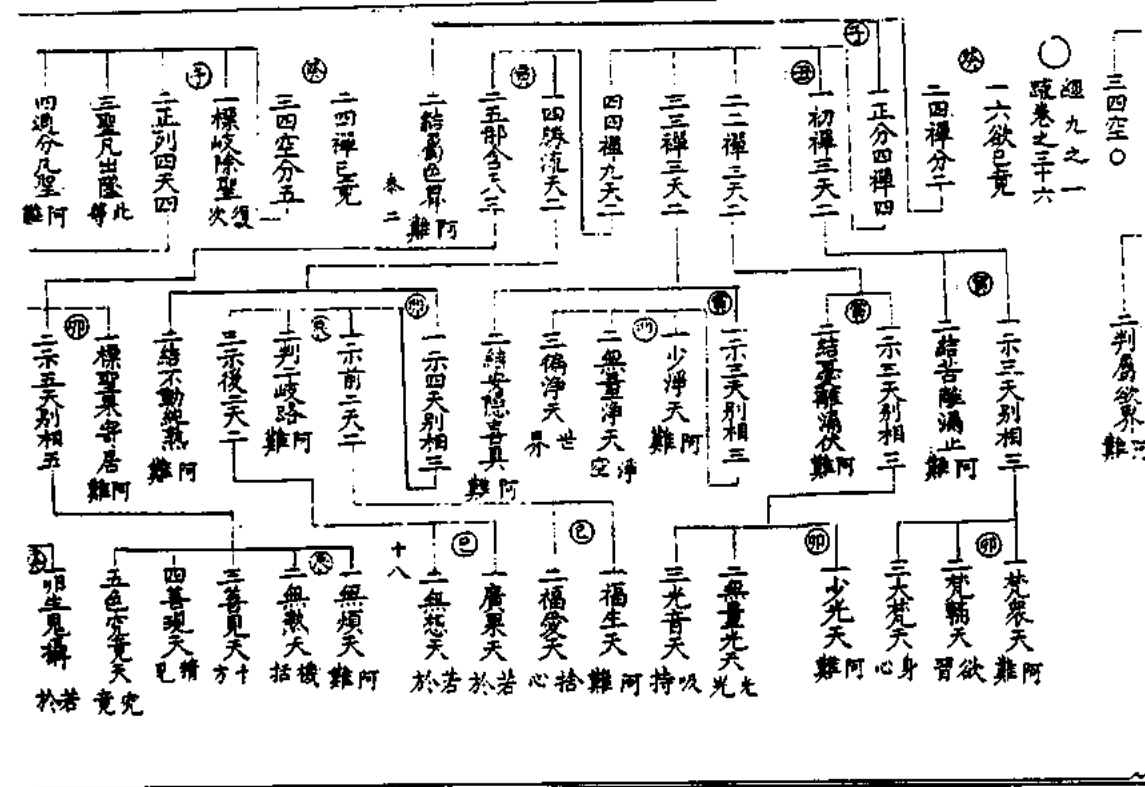 三四空〇
二判屬欲界
阿難
經九之一
疏卷之三十六
癸
一六欲已竟
二四禪分二
子
一正分四禪四
丑
一初禪三天二
二二禪三天二
三三禪三天二
四四禪九天二
寅
一四勝流天二
二五那含天三
二結屬色界
阿難
癸
二四禪已竟
三四空分五
子
一標岐除聖
須次
二正列四天四
三聖凡出墜
此等
四通分凡聖
阿難
寅
一示三天別相三
二結苦離漏止
阿難
寅
一示三天別相三
二結憂離漏伏
阿難
寅
一示三天別相三
卯
一少淨天
阿難
二無量淨天
淨空
三徧淨天
世界
二結安隱喜具
阿難
卯
一示四天別相三
辰
一示前二天二
二判二岐路
阿難
三示後二天二
二結不動純熟
阿難
卯
一標聖果寄居
阿難
二示五天別相五
卯
一梵眾天
阿難
二梵輔天
欲習
三大梵天
身心
卯
一少光天
阿難
二無量光天
光光
三光音天
吸持
巳
一福生天
阿難
二福愛天
捨心
巳
一廣果天
若於
二無想天
若於
十八
辰
一無煩天
阿難
二無熱天
機括
三善見天
十方
四善現天
精見
五色究竟天
究竟
一卵生鬼攝
若於